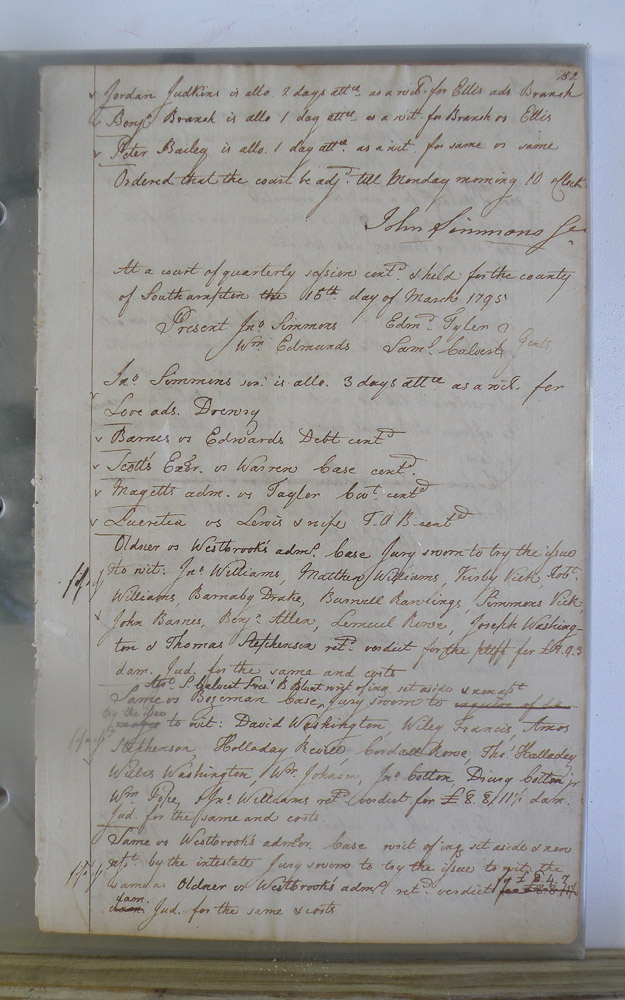 182
Jordan Judkins is allo. 2 days attce as a wit. for Ellis ads Branch
Benja Branch is allo 1 day attce as a wit. for Branch vs Ellis
Peter Bailey is allo. 1 day attce. as a wit. for same vs same
Ordered that the court be adjd. till Monday morning 10 oClock
John Simmons
At a court of quarterly session contd. & held for the county
of Southampton the 16th. day of March 1795
Present Jno. Simmons Edmd. Tyler
Wm Edmunds Saml. Calvert Gents.
Jno. Simmons is allo. 3 days attce as a wit. for
Love ads. Drewry
Barnes vs Edwards Debt contd
Scott's Exer. vs Warren Case contd.
Magetts adm. vs Taylor contd
Lucretia vs Lewis & wife T.A.B. contd
Oldner vs Westbrook's adms. Case Jury sworn to try the issue
to wit: Jno. Williams, Matthew Williams, Kirby Vick, Robt.
Williams, Barnaby Drake, Burwell Rawlings, Simmons Vick,
John Barnes, Benja. Atten, Lemuel Rowe, Joseph Washing-
ton & Thomas Stephenson retd. verdict for the pltff for £
dam. Jud. for the same and costs
S. Calvert B. Blunt writ of inq. set aside & non asst
Same vs Bozeman Case, Jury sworn to
try the issue to wit: David Washington, Wiley Francis, Amos
Stephenson, Holladay Revill Cordall Rowe, Thos. Halladay
Willis Washington, Wm Johnson, Jno. Cotton Drury Cotton jr
Wm Pope, & Jno. Williams retd. verdict for £8.8/11½ dam.
Jud. for the same and costs
Same vs Westbrook's admor. Case writ of inq. set aside & non
asst. by the intestate Jury sworn to try the issue to wit, the
same as Oldner vs Westbrook's adms. retd. verdict for £8.4.7
dam. Jud. for the same & costs